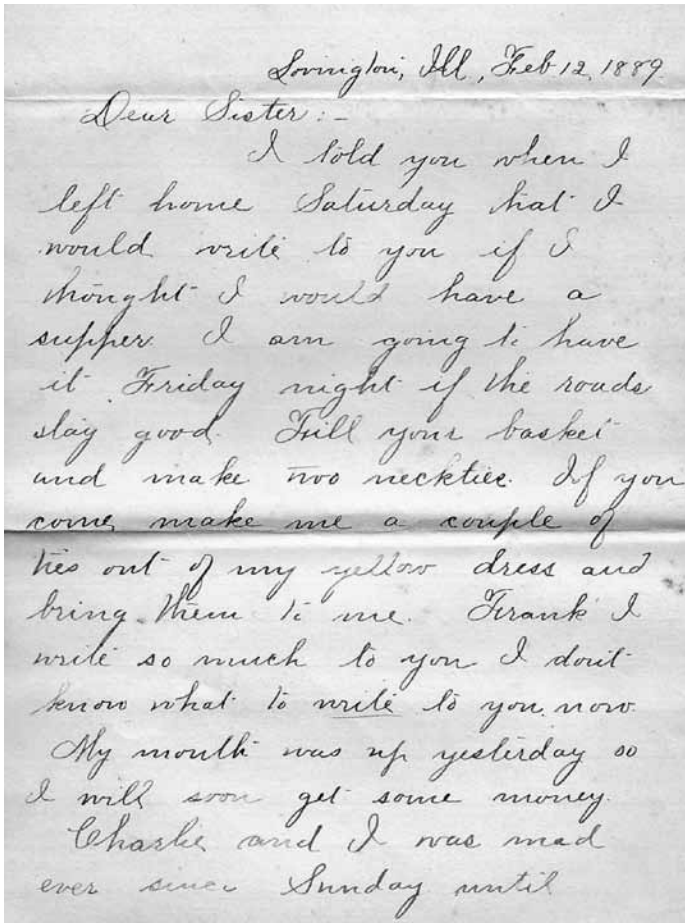 Lovington, Ill, Feb 12, 1889.
Dear Sister:-
I told you when I
left home Saturday that I
would write to you if I
thought I would have a
supper. I am going to have
it Friday night if the roads
stay good. Fill your basket
and make two neckties. If you
come, make me a couple of
ties out of my yellow dress and
bring them to me. Frank I
write so much to you I don't
know what to write to you now.
My month was up yesterday so
I will soon get some money.
Charlie and I was mad
ever since Sunday until